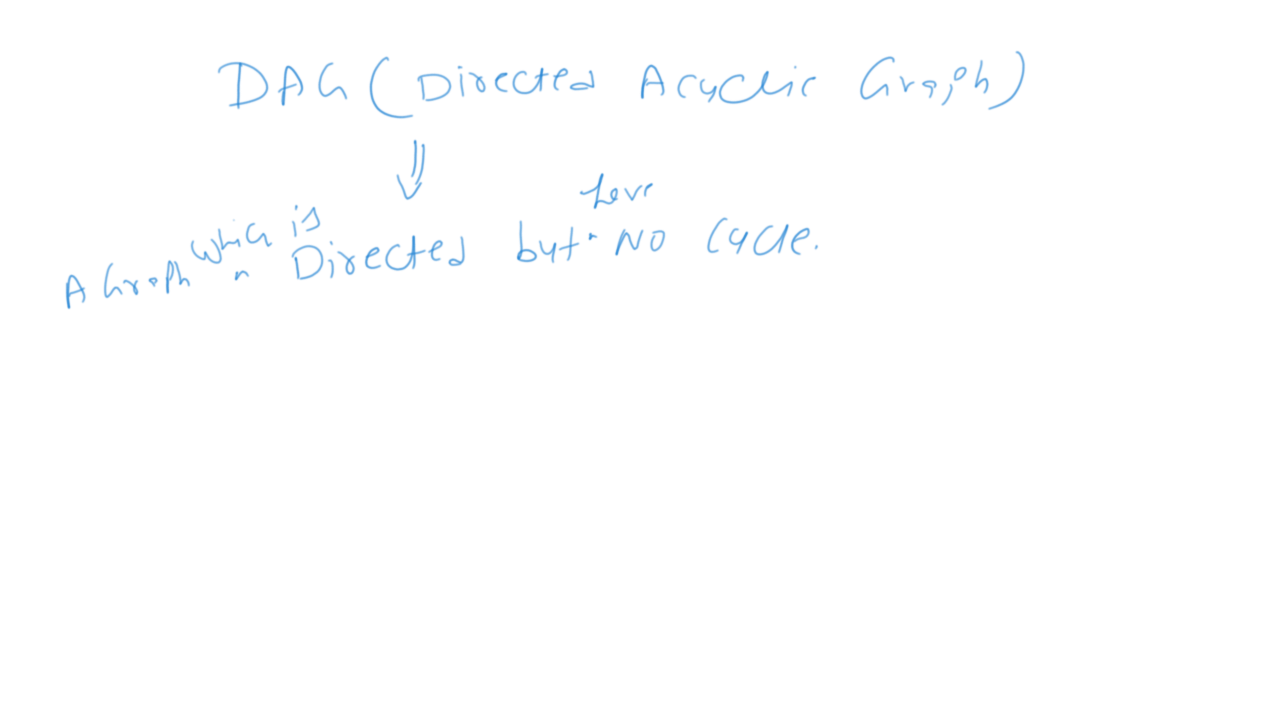 DAG (Directed Acyclic Graph)
A Graph which is Directed but have NO Cycle.